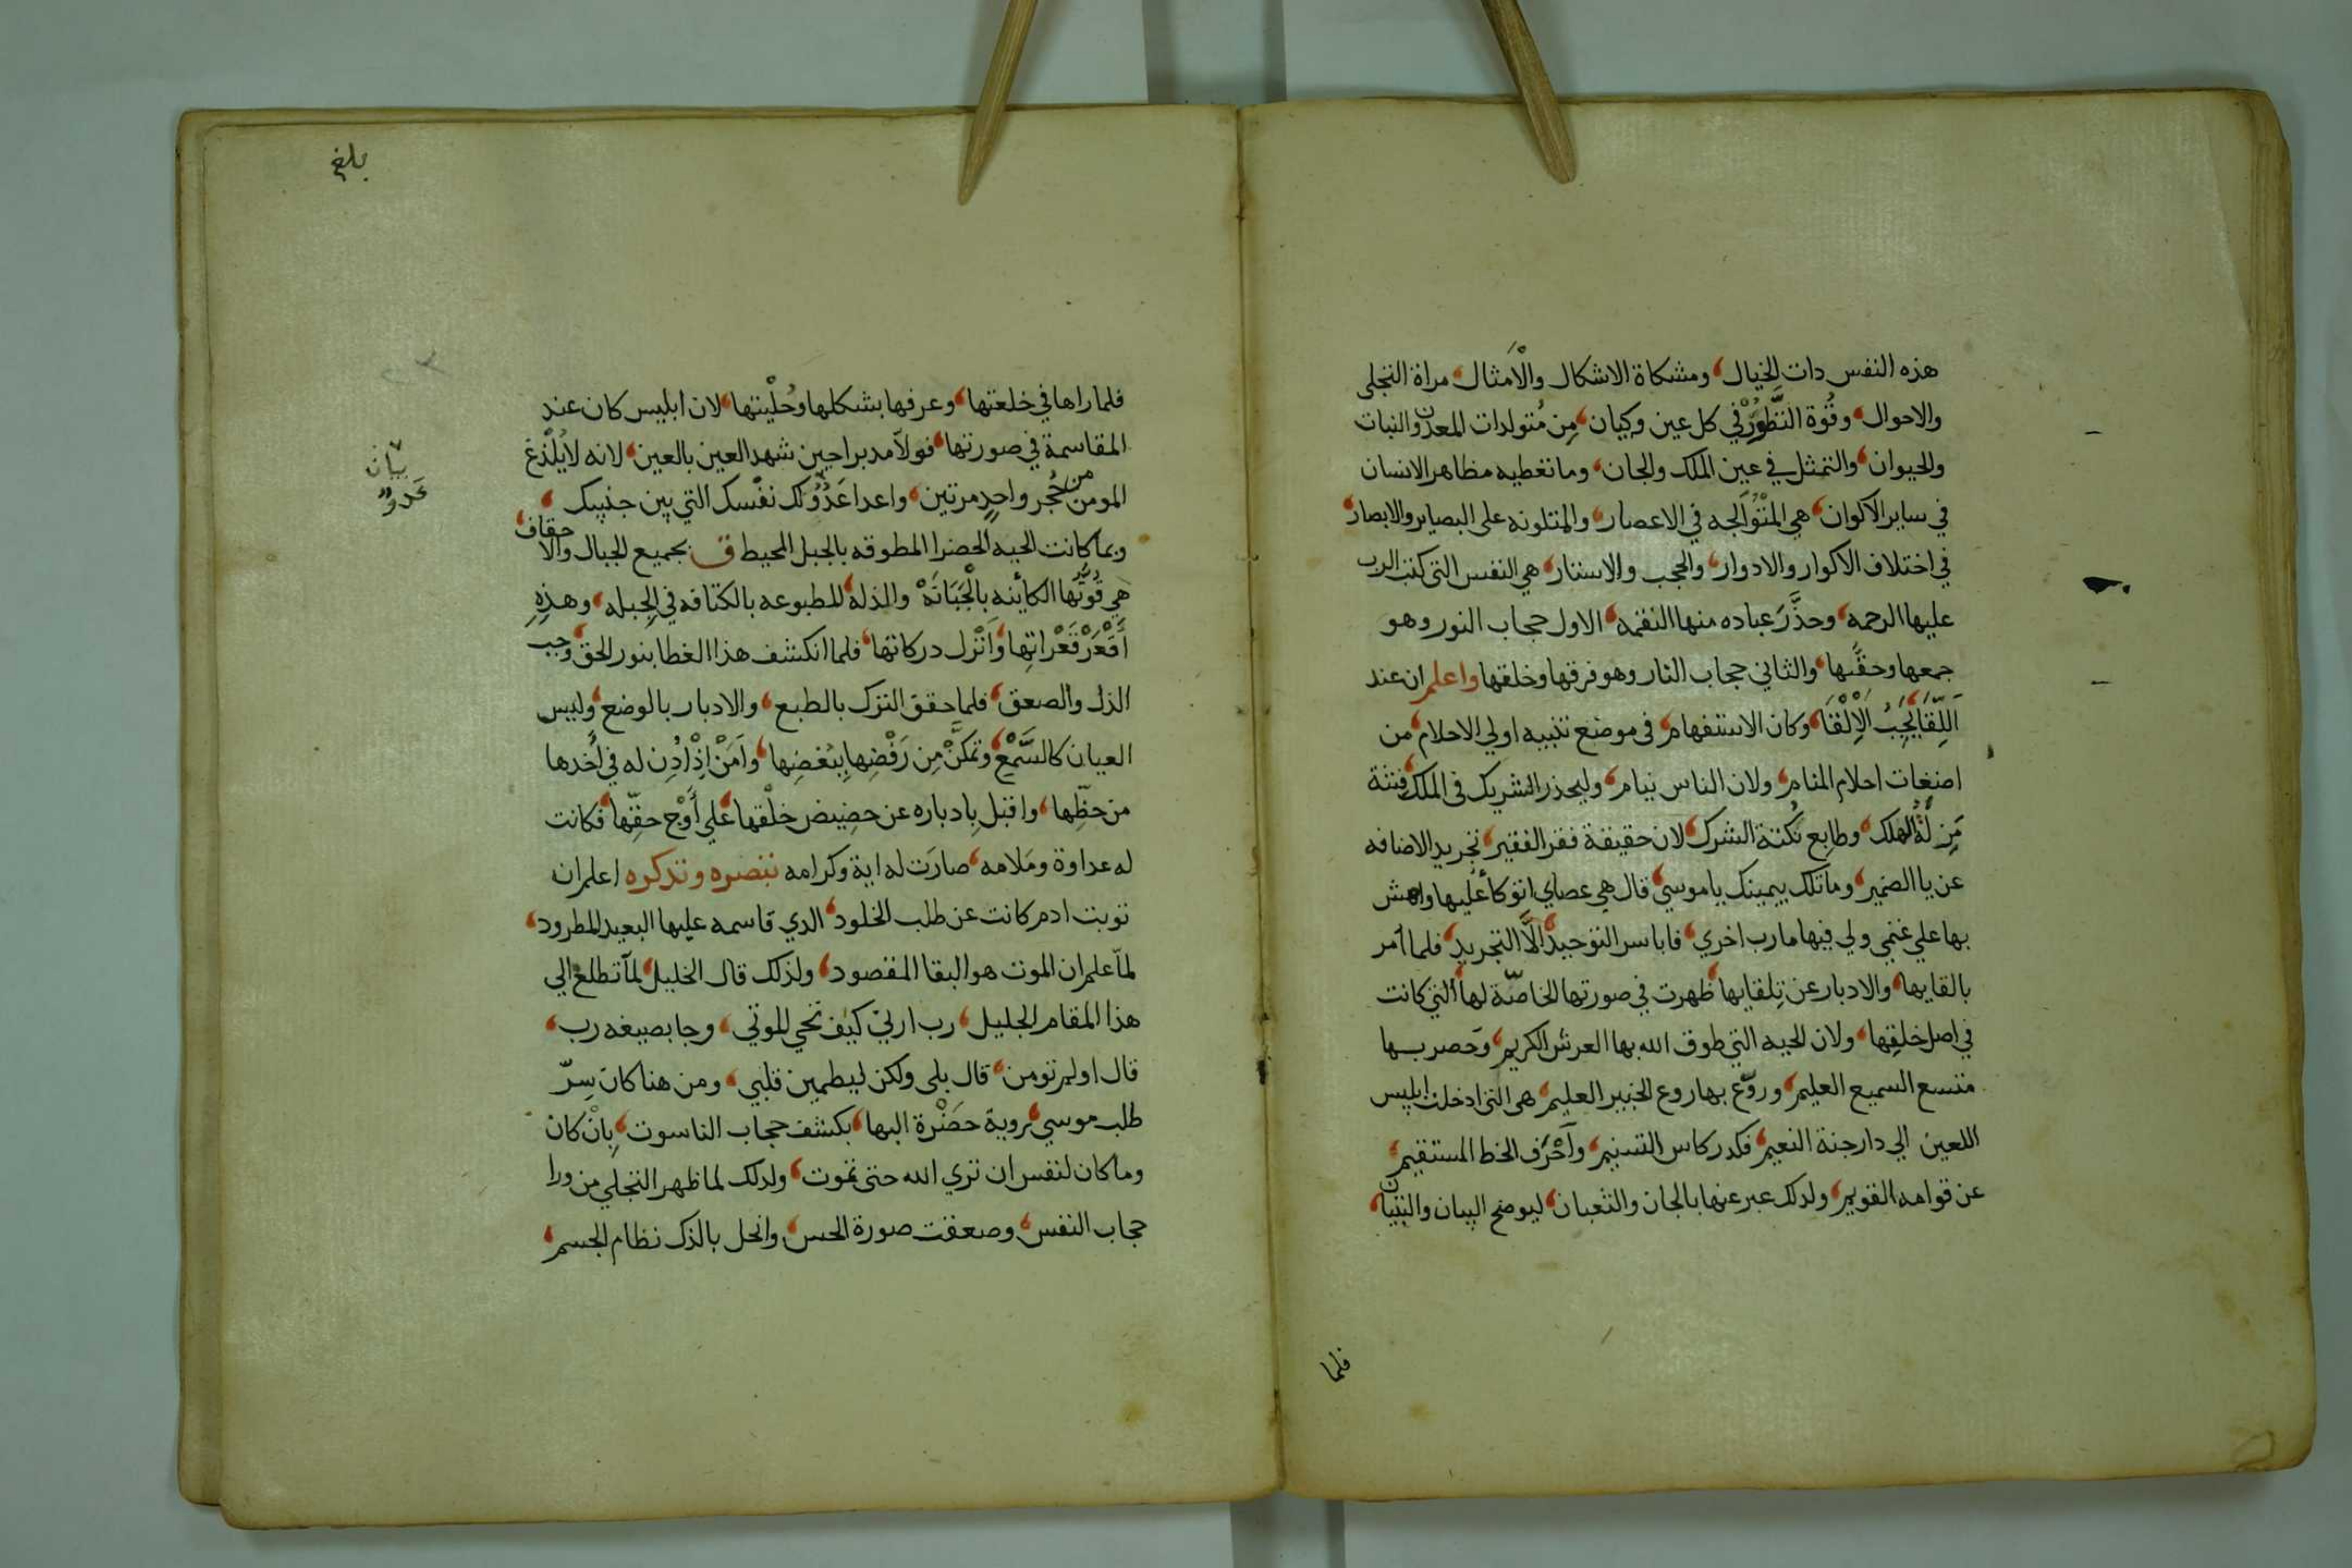 هذه النفس دات الخيال ومشكاة الاشكال والأمثال مراة التجلى
والاحوال وقُوة التَّطوُّر في كل عين وكيان مِن مُتولدات المعدن والنبات
والحيوان والتمثل في عين الملك والجان وما تعطيه مظاهر الانسان
في ساير الاكوان هي المتْوَالجه في الاعصار والمتلونه على البصاير والابصار
في اختلاف الاكوار والادوار والحجب والاستتار هي النفس التي كتب الرب
عليها الرحمه وحذَّر عباده منها النقمه الاول حجاب النور وهو
جمعها وحقّها والثاني حجاب النار وهو فرقها وخلقها واعلم ان عند
اللِّقا يُجِبُ الاِلْقَا وكان الاستفهام فى موضع تنبيه اولي الاحلام من
اضغات احلام المنام ولان الناس نيام وليحذر الشريك فى الملك فتنة
الهلك وطابع نُكتة الشرك لان حقيقة فقر الفقير تجريد الاضافه
عن يا الضمير وما تلك بيمينك ياموسي قال هي عصاي اتوكأ عليها واهش
بها علي غنمي ولي فيها مارب اخري فابا سر التوحيد الاَّ التجريد فلما أمر
بالقايها والادبار عن تِلقايها ظهرت في صورتها الخاصّة لها التي كانت
في اصل خلقِها ولان الحيه التي طوق الله بها العرش الكريم وحَصر بها
متسع السميع العليم وروّع بها روع الخبير العليم هى التى ادخلت ابليس
اللعين الي دار جنة النعيم فكدر كاس التسنيم وأحْرَف الخط المستقيم
عن قوامه القويم ولدلك عبر عنها بالجان والثعبان ليوضح البيان والتبيان
فلما
بلغ
فلما راها في خلعتها وعرفها بشكلها وحُلْيتها لان ابليس كان عند
المقاسمة في صورتها فولاّ مدبرا حين شهد العين بالعين لانه لا يُلْدَغ
المومن من جُحر واحدٍ مرتين واعدا عَدُوّك نفْسك التي بين جنبيك
بيان
عَدوّ
وبما كانت الحيه الخضرا المطوقه بالجبل المحيط ق بجميع الجبال والاحقاف
هي قُوتُها الكاينه بالْجَبَانَهْ والذله المطبوعه بالكتافه في الجِبله وهذِهِ
أقْعَر قَعْراتِها وأنْزل دركاتها فلما انكشف هذا الغطا بنور الحق وجب
الذل والصعق فلما حقق الترك بالطبع والادبار بالوضع وليس
العيان كالسَّمْع وتمكَّنْ مِن رَفْضِها بِبُغضِها وأمَنْ إذْ أذِن له في أخدها
من حظِّها واقبل بِادباره عن حضِيض خلْقها علي أوْج حقِّها فكانت
له عداوة ومَلامه صارَت له اية وكرامه تبصره وتدكره اعلم ان
توبت ادم كانت عن طلب الخلود الدي قاسمه عليها البعيد المطرود
لمّا علم ان الموت هو البقا المقصود ولذلك قال الخليل لمّا تطلع الي
هذا المقام الجليل رب ارني كيف تحي الموتي وجا بصيغه رب
قال اولم تومن قال بلى ولكن ليطمين قلبي ومن هنا كان سِرّ
طلب موسي بروية حَضْرة البها بكشف حجاب الناسوت بِانْ كان
وما كان لنفس ان تري الله حتى تموت ولدلك لما ظهر التجلي من ورا
حجاب النفس وصعقت صورة الحس وانحل بالدك نظام الجسم